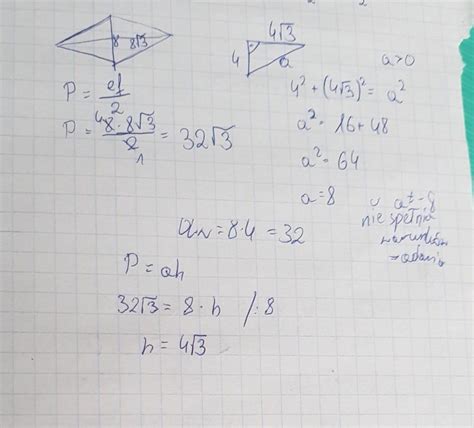 8 8√3
P = ef/2
P = ⁴8·8√3/2₁ = 32√3
4√3
4 a
a>0
4² + (4√3)² = a²
a² = 16+48
a² = 64
a=8 v a=-8
nie spełnia
warunków
zadania
= 8·4 = 32
P = ah
32√3 = 8·h /:8
h = 4√3